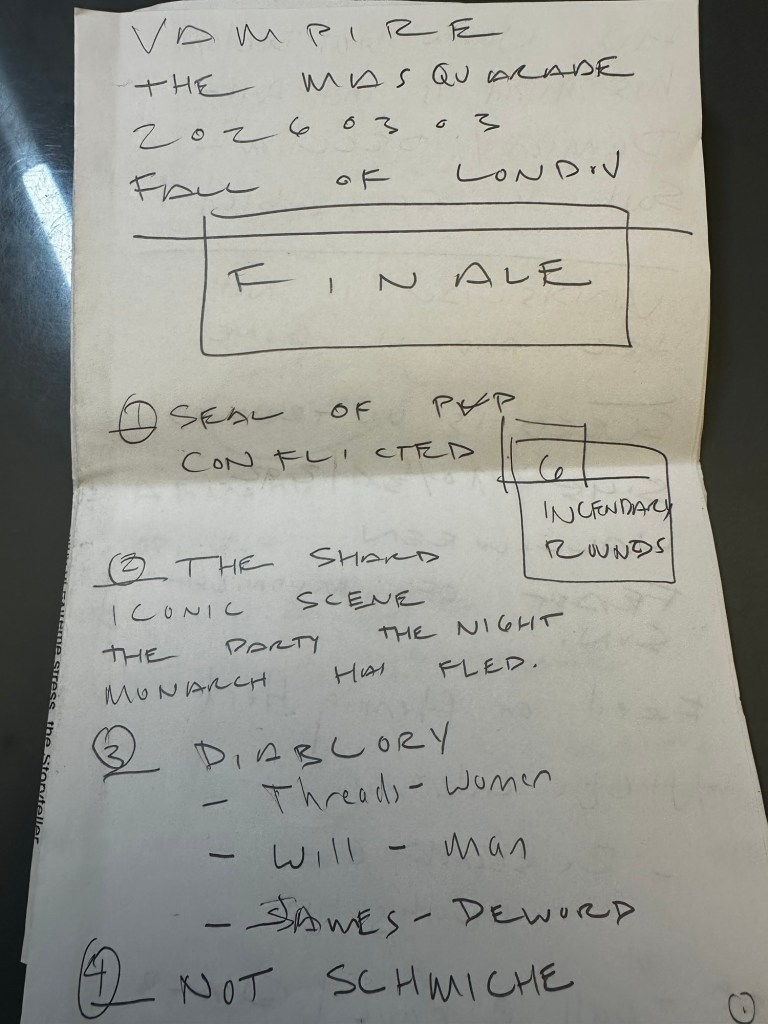 VAMPIRE
THE MASQUARADE
20260303
FALL OF LONDON
FINALE
① SEAL OF PVP
CONFLICTED
6
INCENDARY
ROUNDS
② THE SHARD
ICONIC SCENE
THE PARTY THE NIGHT
MONARCH HAS FLED.
③ DIABLORY
- Threads - Women
- Will - Man
- JAMES - DEWORD
④ NOT SCHMICHE
extreme stress, the storyteller